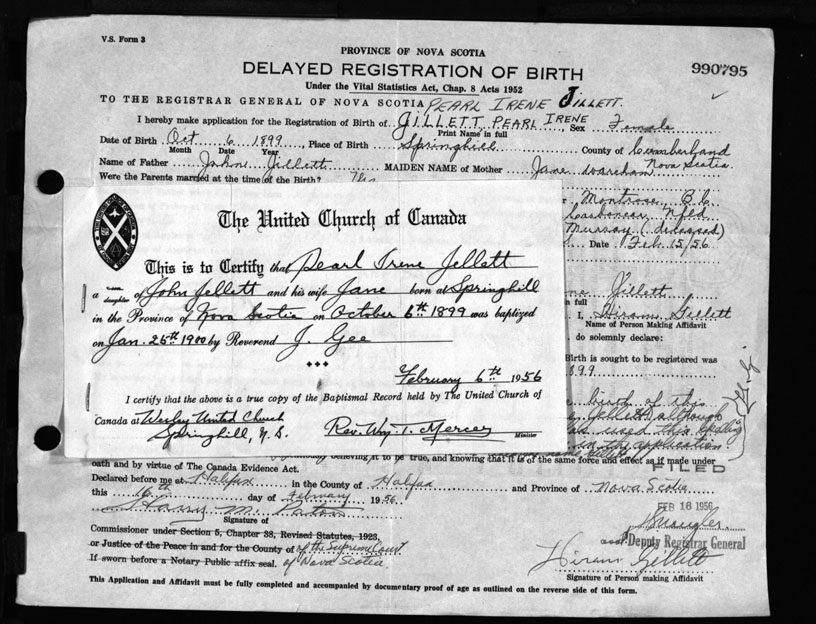 V.S. Form 3
PROVINCE OF NOVA SCOTIA
DELAYED REGISTRATION OF BIRTH
990795
Under the Vital Statistics Act, Chap. 8 Acts 1952
TO THE REGISTRAR GENERAL OF NOVA SCOTIA PEARL IRENE JILLETT.
I hereby make application for the Registration of Birth of JILLETT, PEARL IRENE Sex Female
Print Name in full
Date of Birth Oct 6 1899, Place of Birth Springhill County of Cumberland
Month Date Year
Nova Scotia
Name of Father John Jillett MAIDEN NAME of Mother Jane Wareham
Were the Parents married at the time of the Birth?
Montrose, B.C.
Carbonear, Nfld
Murray (deceased)
Date Feb 15/56
The United Church of Canada
This is to Certify that Pearl Irene Jellett
a daughter of John Jellett and his wife Jane born at Springhill
in the Province of Nova Scotia on October 6th 1899 was baptized
on Jan. 25th 1900 by Reverend J. Gee
February 6th 1956
I certify that the above is a true copy of the Baptismal Record held by The United Church of
Canada at Wesley United Church
Springhill, N.S. Rev. Wm. T. Mercer
Minister
Jillett
in full
I, Hiram Gillett
Name of Person Making Affidavit
do solemnly declare:
Birth is sought to be registered was
899
birth of this
Jellett, although
used this spelling
in the application
H.G.
believing it to be true, and knowing that it is of the same force and effect as if made under
oath and by virtue of The Canada Evidence Act.
FILED
Declared before me at Halifax in the County of Halifax and Province of Nova Scotia
this 16th day of February 1956
FEB 16 1956
Harry M.
Signature of
Commissioner under Section 5, Chapter 38, Revised Statutes, 1923,
Deputy Registrar General
or Justice of the Peace in and for the County of of the Supreme Court
If sworn before a Notary Public affix seal. of Nova Scotia
Hiram Gillett
Signature of Person making Affidavit
This Application and Affidavit must be fully completed and accompanied by documentary proof of age as outlined on the reverse side of this form.